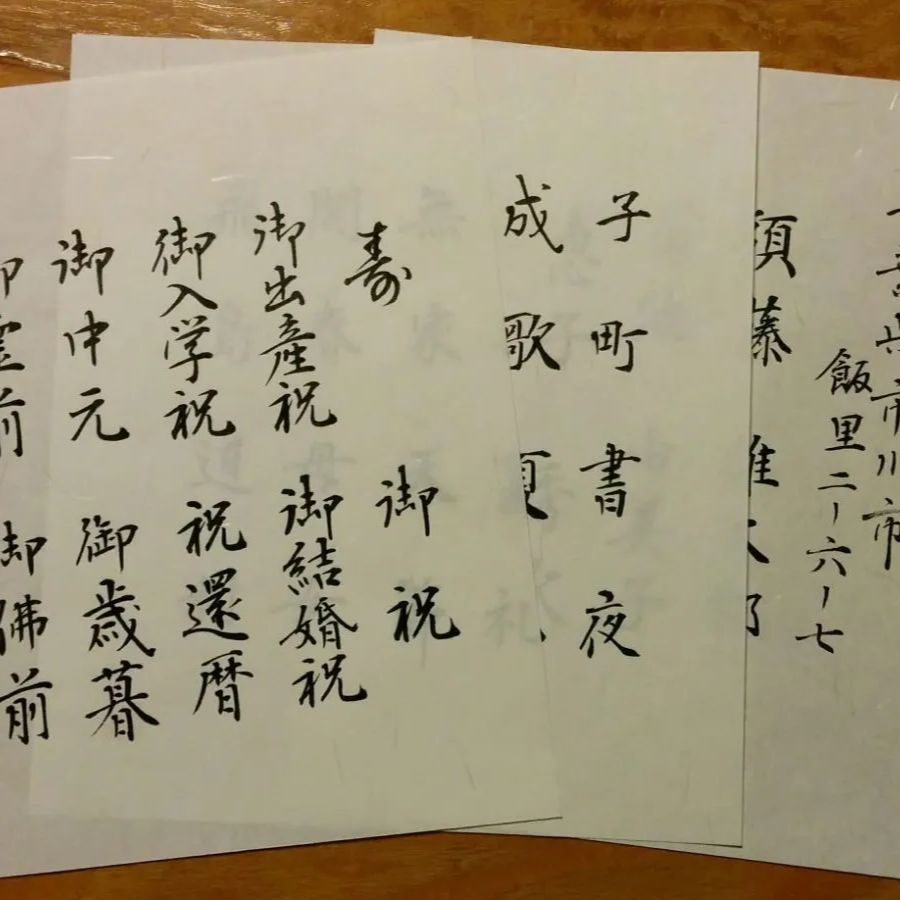 千葉県市川市
飯里二ー六ー七
須藤雄太郎
子町書夜
成歌頂
寿
御祝
御出産祝
御結婚祝
御入学祝
祝還暦
御中元
御歳暮
御霊前
御佛前